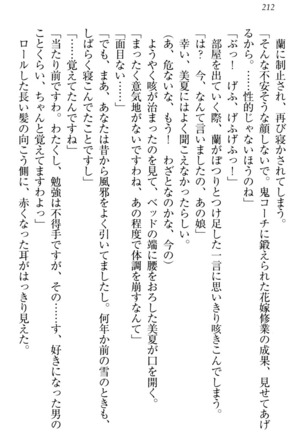 212
蘭に制止され、再び寝かされてしまう。
「そんな不安そうな顔しないで。鬼コーチに鍛えられた花嫁修業の成果、見せてあげ
るから。……性的じゃないほうのね」
「ぶっ！　げふ、げふげふっ！」
部屋を出ていく際、蘭がぽつとつけ足した一言に思いきり咳きこんでしまう。
「は？　今、なんて言いましたの、あの娘」
幸い、美夏にはよく聞こえなかったらしい。
（あ、危ないな、もう！　わざとなのかな、今の）
ようやく咳が治まったのを見て、ベッドの端に腰をおろした美夏が口を開く。
「まったく意気地がないですわね、あの程度で体調を崩すなんて」
「面目ない……」
「でも、まあ、あなたは昔から風邪をよく引いてましたわ。何年か前の雪のときも、
しばらく寝こんでたことですし」
「……覚えてたんですね」
「当たり前ですわ。わたくし、勉強は不得手ですが、その……す、好きになった男の
ことくらい、ちゃんと覚えてますわよっ」
ロールした長い髪の向こう側に、赤くなった耳がはっきり見えた。